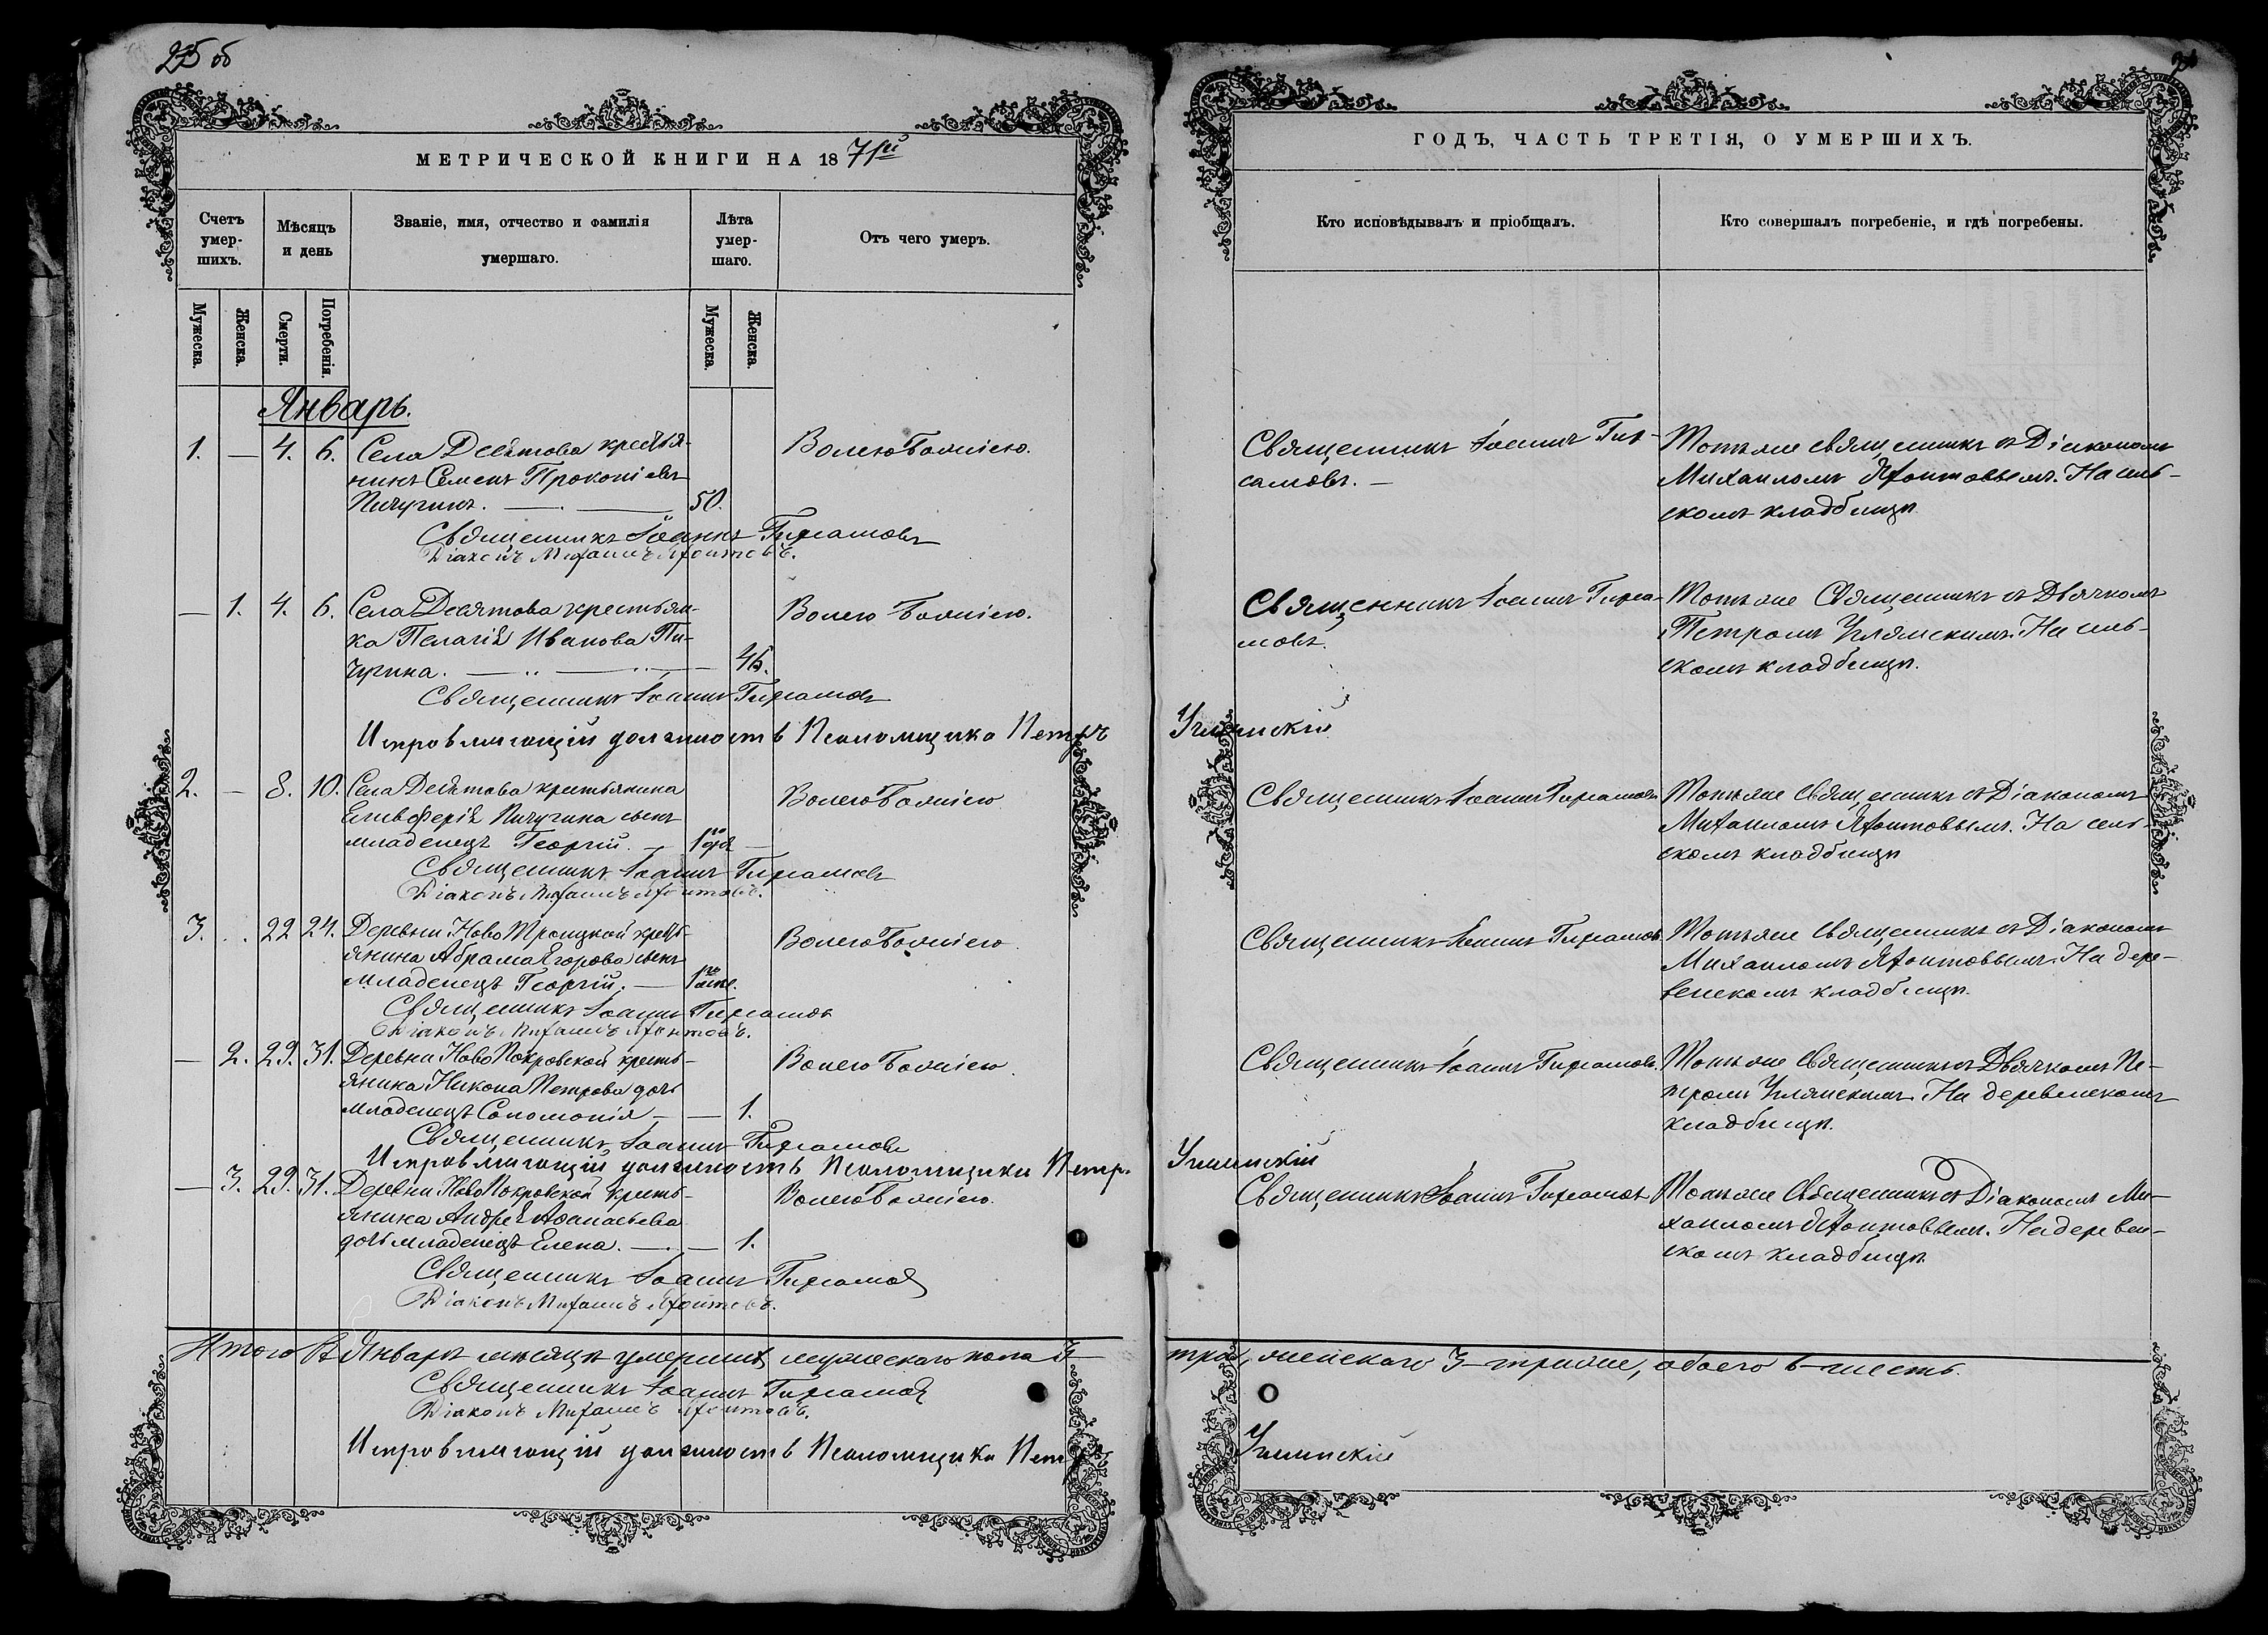 25 об
МЕТРИЧЕСКОЙ КНИГИ НА 1871й
Счетъ умер-шихъ.
Мѣсяцъ и день
Званіе, имя, отчество и фамилія умершаго.
Лѣта умер-шаго.
Отъ чего умеръ.
Мужеска.
Женска.
Смерти.
Погребенія.
Мужеска.
Женска.
Январь.
1. — 4. 6. Села Девятова крестья- Волею Божіею.
нинъ Семенъ Прокопіевъ
Пичугинъ. — 50.
Священникъ Іоаннъ
Діаконъ Михаилъ Яхонтовъ.
— 1. 4. 6. Села Девятова крестьян- Волею Божіею.
ка Пелагія Иванова Пи-
чугина. — 46.
Священникъ Іоаннъ
Исправляющій должность Псаломщика Петръ
2. — 8. 10. Села Девятова крестьянина Волею Божіею
Елевферія Пичугина сынъ
младенецъ Георгій. — 1 года
Священникъ Іоаннъ
Діаконъ Михаилъ Яхонтовъ.
3. . 22 24. Деревни Ново Троицкой кресть- Волею Божіею.
янина Абрама Егорова сынъ
младенецъ Георгій. —
Священникъ Іоаннъ
Діаконъ Михаилъ Яхонтовъ.
— 2. 29. 31. Деревни Ново Покровской кресть- Волею Божіею.
янина Никона Петрова дочь
младенецъ Соломонія — — 1.
Священникъ Іоаннъ
Исправляющій должность Псаломщика Петр.
— 3. 29. 31. Деревни Ново Покровской кресть- Волею Божіею.
янина Андрея Афанасьева
дочь младенецъ Елена. — — 1.
Священникъ Іоаннъ
Діаконъ Михаилъ Яхонтовъ.
Итого въ Январѣ мѣсяцѣ умершихъ мужескаго пола 3
Священникъ Іоаннъ
Діаконъ Михаилъ Яхонтовъ.
Исправляющій должность Псаломщика Петръ
ГОДЪ, ЧАСТЬ ТРЕТІЯ, О УМЕРШИХЪ.
Кто исповѣдывалъ и пріобщалъ.
Кто совершалъ погребеніе, и гдѣ погребены.
Священникъ Іоаннъ
Тотъ же священникъ съ Діакономъ
Михаиломъ Яхонтовымъ. На сель-
скомъ кладбищѣ.
Священникъ Іоаннъ
Тотъ же Священникъ съ Дьячкомъ
Петромъ Углянскимъ. На сель-
скомъ кладбищѣ.
Углянскій
Священникъ Іоаннъ
Тотъ же Священникъ съ Діакономъ
Михаиломъ Яхонтовымъ. На сель-
скомъ кладбищѣ
Священникъ Іоаннъ
Тотъ же Священникъ съ Діакономъ
Михаиломъ Яхонтовымъ. На дере-
венскомъ кладбищѣ.
Священникъ Іоаннъ
Тотъ же Священникъ съ Дьячкомъ Пе-
тромъ Углянскимъ. На деревенскомъ
кладбищѣ.
Углянскій
Священникъ Іоаннъ
Тотъ же Священникъ съ Діакономъ Ми-
хаиломъ Яхонтовымъ. На деревен-
скомъ кладбищѣ.
три, женскаго 3 — три же, обоего 6 — шесть.
Углянскій